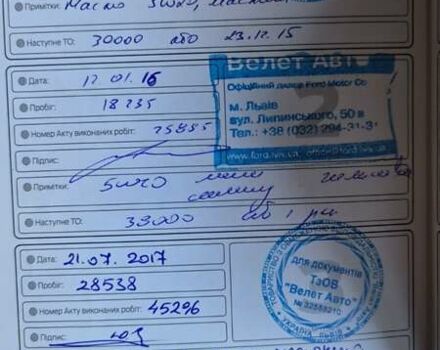 Примітки: Масло 5W20,
Наступне ТО: 30000 або 23.12.15
Дата: 12.01.16
Пробіг: 18235
Номер Акту виконаних робіт: 25885
Підпис:
Примітки: 5W20
Наступне ТО: 33000 або 1 рік
Велет Авто
Офіційний дилер Ford Motor Co
м. Львів
вул. Липинського, 50 в
Тел.: +38 (032) 294-31-31
www.ford.lviv.ua,
Дата: 21.07.2017
Пробіг: 28538
Номер Акту виконаних робіт: 45296
Підпис:
для документів
ТзОВ
"Велет Авто"
№ 32568210
УКРАЇНА ЛЬВІВ